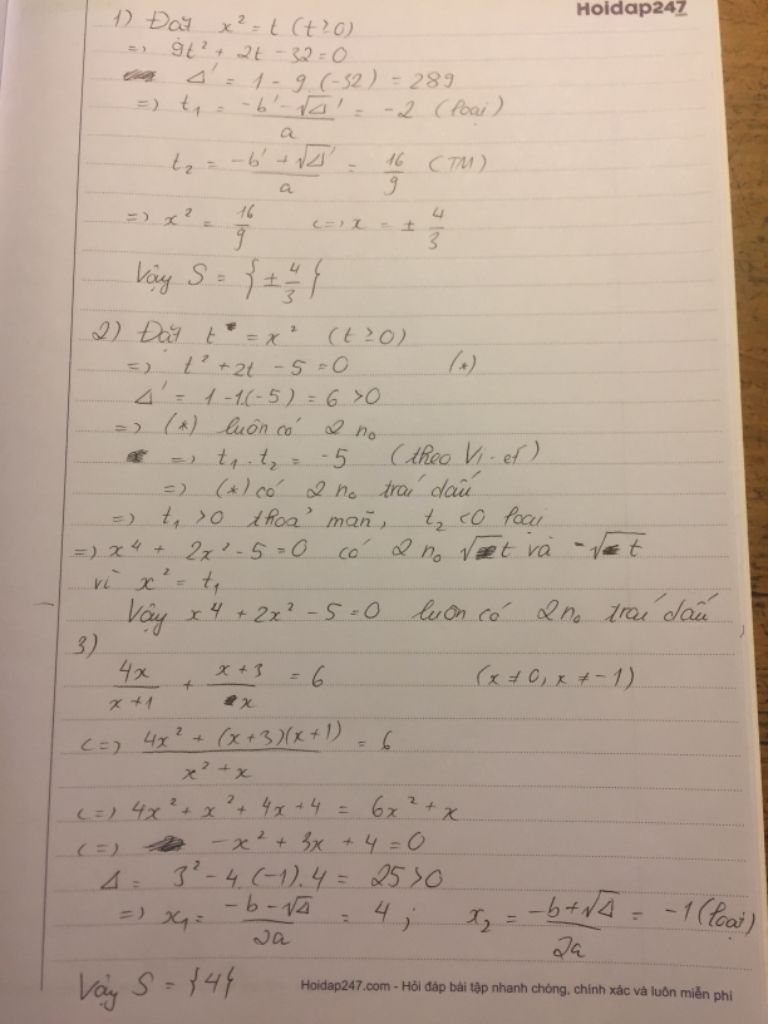 Hoidap247
1) Đặt x² = t (t ≥ 0)
=> 9t² + 2t - 32 = 0
Δ' = 1 - 9.(-32) = 289
=> t₁ = (-b' - √Δ')/a = -2 (loại)
t₂ = (-b' + √Δ')/a = 16/9 (TM)
=> x² = 16/9 <=> x = ± 4/3
Vậy S = {± 4/3}
2) Đặt t = x² (t ≥ 0)
=> t² + 2t - 5 = 0 (*)
Δ' = 1 - 1.(-5) = 6 > 0
=> (*) luôn có 2 no
=> t₁ . t₂ = -5 (theo Vi-et)
=> (*) có 2 no trái dấu
=> t₁ > 0 thoả mãn, t₂ < 0 loại
=> x⁴ + 2x² - 5 = 0 có 2 no √t và -√t
vì x² = t₁
Vậy x⁴ + 2x² - 5 = 0 luôn có 2 no trái dấu
3)
4x/(x+1) + (x+3)/x = 6 (x ≠ 0, x ≠ -1)
<=> (4x² + (x+3)(x+1))/(x² + x) = 6
<=> 4x² + x² + 4x + 4 = 6x² + x
<=> -x² + 3x + 4 = 0
Δ = 3² - 4.(-1).4 = 25 > 0
=> x₁ = (-b - √Δ)/2a = 4 ; x₂ = (-b + √Δ)/2a = -1 (loại)
Vậy S = {4}
Hoidap247.com - Hỏi đáp bài tập nhanh chóng, chính xác và luôn miễn phí